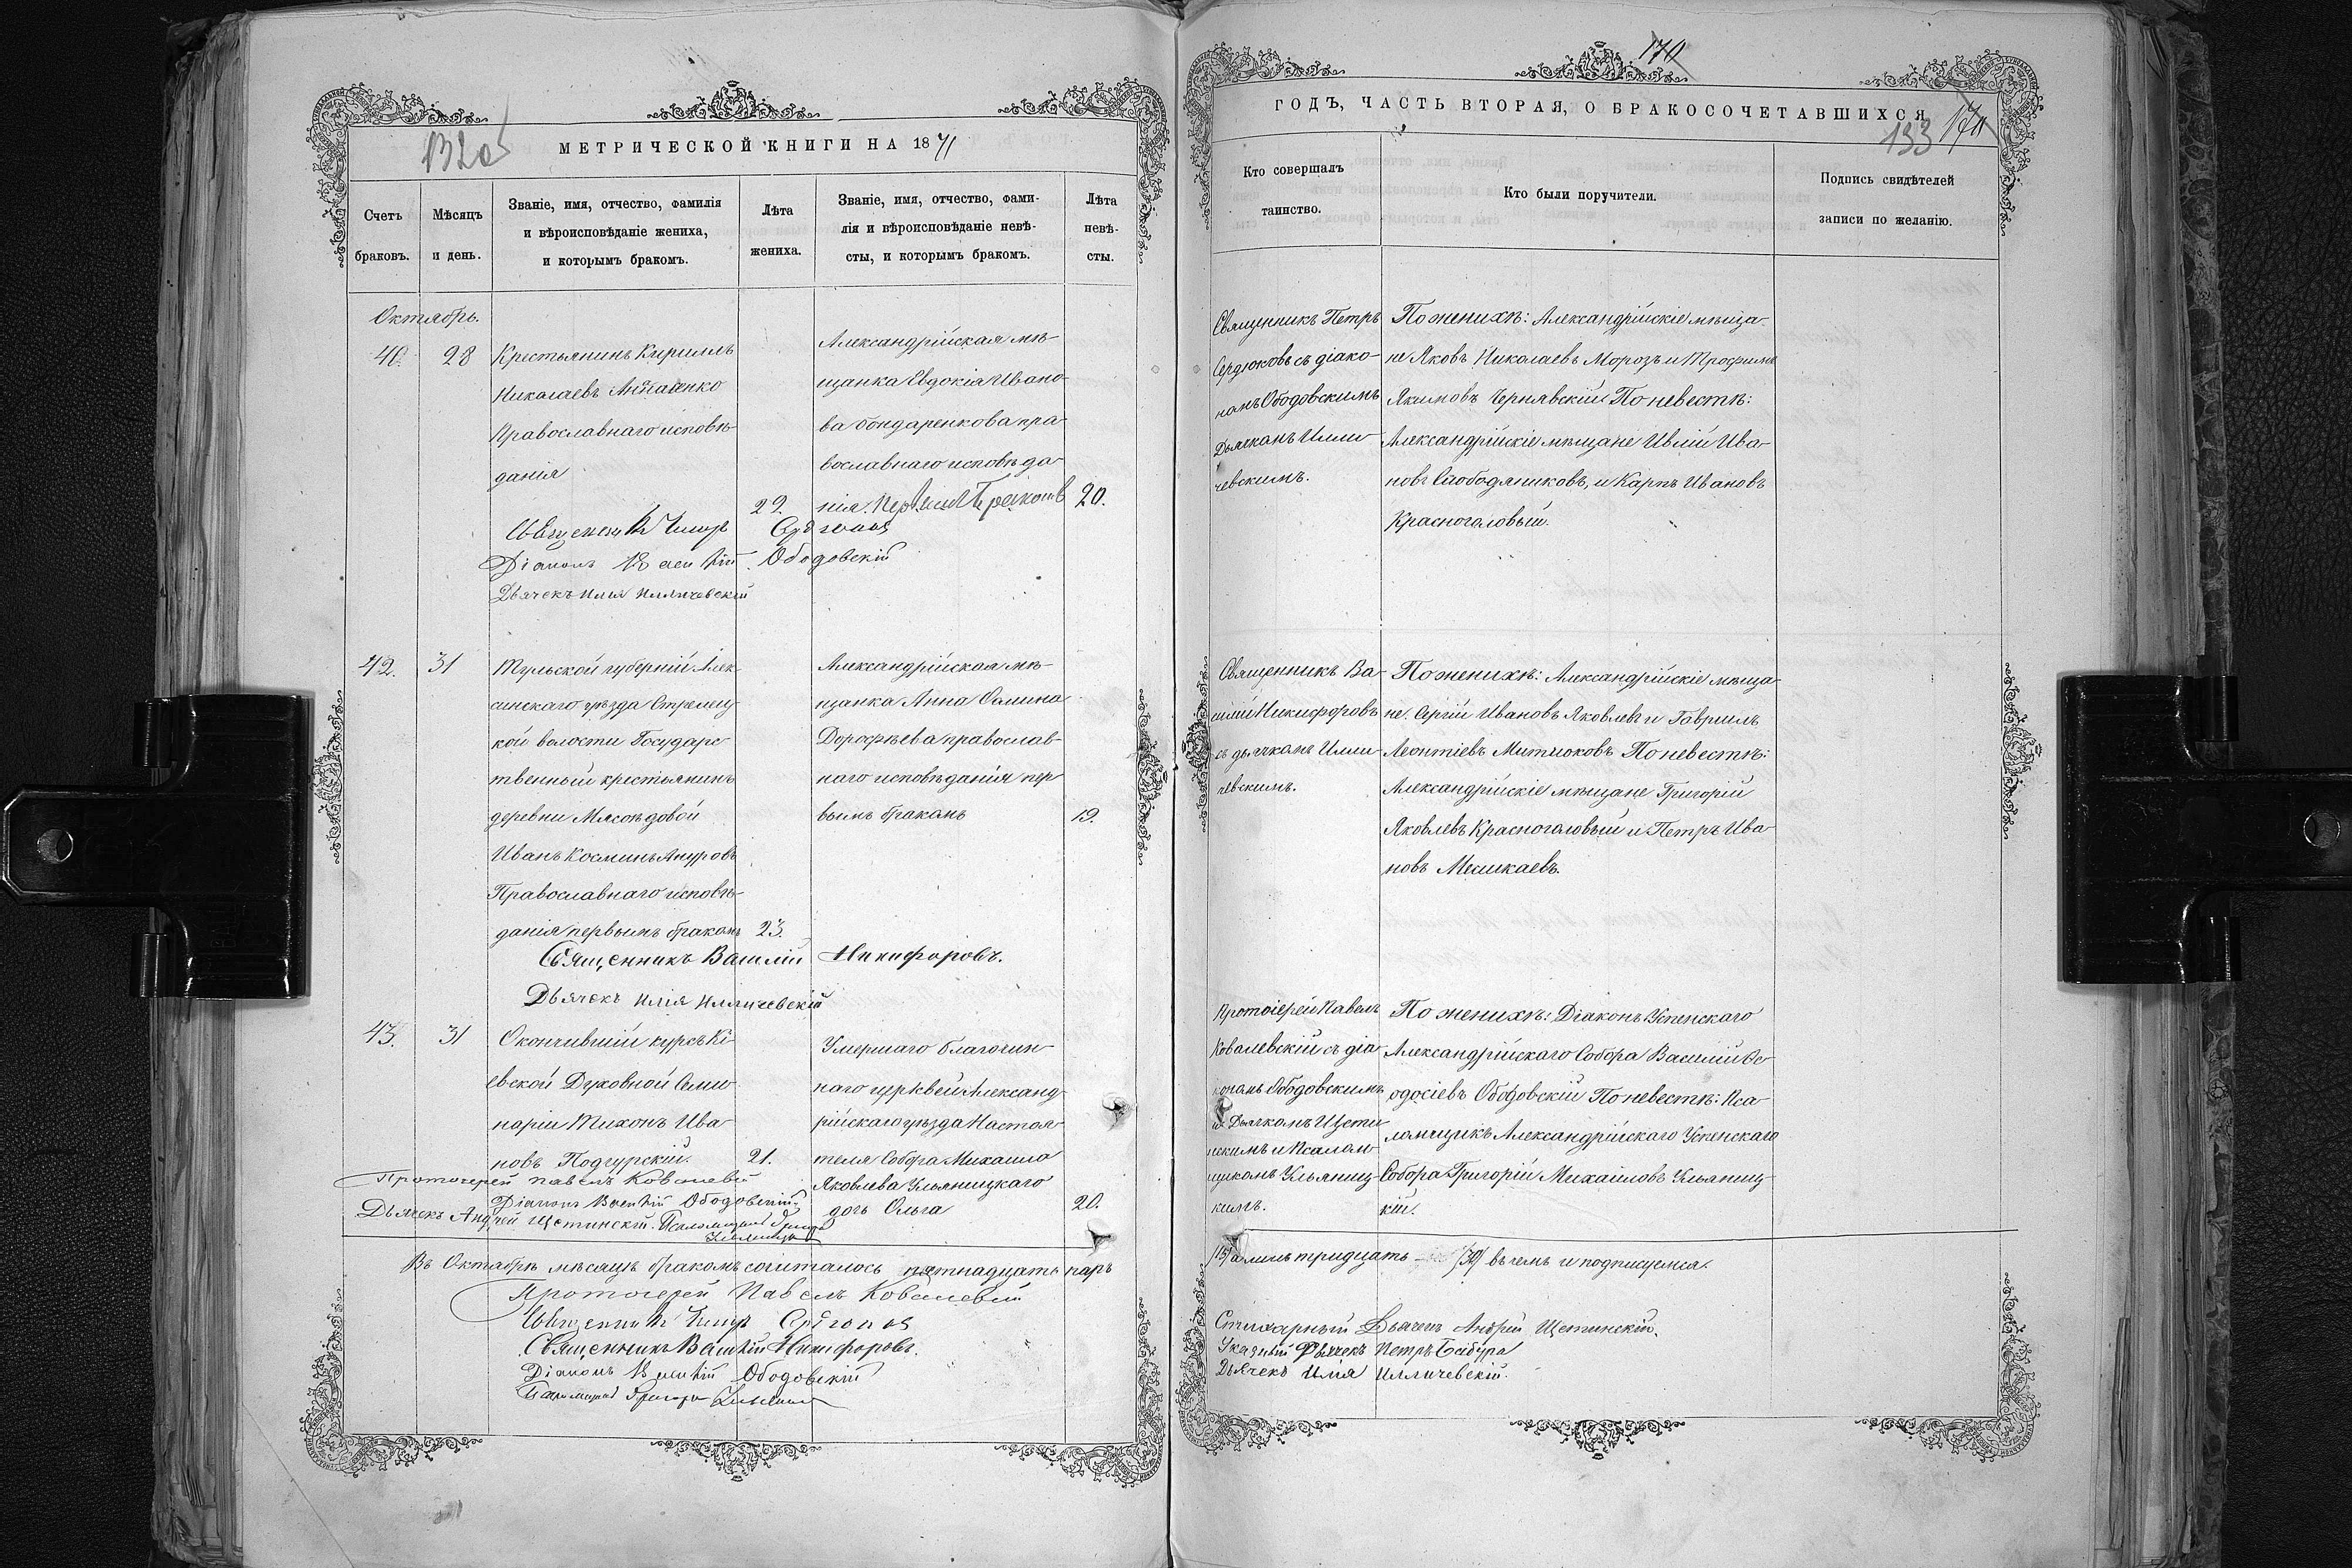 132об
МЕТРИЧЕСКОЙ КНИГИ НА 1871
Счетъ браковъ.
Мѣсяцъ и день.
Званіе, имя, отчество, фамилія
и вѣроисповѣданіе жениха,
и которымъ бракомъ.
Лѣта
жениха.
Званіе, имя, отчество, фами-
лія и вѣроисповѣданіе невѣ-
сты, и которымъ бракомъ.
Лѣта
невѣ-
сты.
Октябрь.
28
Крестьянинъ Кириллъ
Николаевъ
Православнаго исповѣ-
данія
29.
Александрійская мѣ-
щанка Евдокія Ивано-
ва Бондаренкова пра-
вославнаго исповѣда-
нія. Первымъ бракомъ
20.
Священникъ Петръ Сердюковъ
Діаконъ Василій Ободовскій
Дьячекъ Илія Илличевскій
42.
31
Тульской губерніи Алек-
синскаго уѣзда Стрелец-
кой волости Государс-
твенный крестьянинъ
деревни Мясоѣдовой
Иванъ Косминъ Ануровъ
Православнаго исповѣ-
данія первымъ бракомъ
23.
Александрійская мѣ-
щанка Анна Фомина
Дорофѣева православ-
наго исповѣданія пер-
вымъ бракомъ
19.
Священникъ Василій Никифоровъ.
Дьячекъ Илія Илличевскій
43.
31
Окончившій курсъ Кі-
евской Духовной Семи-
наріи Тихонъ Ива-
новъ Подгурскій.
21.
Умершаго благочин-
наго церквей Александ-
рійскаго уѣзда Настоя-
теля Собора Михаила
Яковлева Ульяницкаго
дочь Ольга
20.
Протоіерей Павелъ Ковалевскій
Діаконъ Василій Ободовскій.
Дьячекъ Андрей Щетинскій. Псаломщикъ Григорій
Въ Октябрѣ мѣсяцѣ бракомъ сочиталось пятнадцать паръ
Протоіерей Павелъ Ковалевскій
Священникъ Петръ Сердюковъ
Священникъ Василій Никифоровъ.
Діаконъ Василій Ободовскій
Псаломщикъ Григорій
170
ГОДЪ, ЧАСТЬ ВТОРАЯ, О БРАКОСОЧЕТАВШИХСЯ
133
170
Кто совершалъ
таинство.
Кто были поручители.
Подпись свидѣтелей
записи по желанію.
Священникъ Петръ
Сердюковъ съ діако-
номъ Ободовскимъ
Дьячкомъ Илли-
чевскимъ.
По женихѣ: Александрійскіе мѣща-
не Яковъ Николаевъ Морозъ и Трофимъ
Якимовъ Чернявскій По невестѣ:
Александрійскіе мѣщане Ивлій Ива-
новъ Слободяниковъ, и Карпъ Ивановъ
Красноголовый.
Священникъ Ва-
силій Никифоровъ
съ дьячкомъ Илли-
чевскимъ.
По женихѣ: Александрійскіе мѣща-
не. Сергій Ивановъ Яковлевъ и Гавріилъ
Леонтіевъ Митюковъ По невестѣ:
Александрійскіе мѣщане Григорій
Яковлевъ Красноголовый и Петръ Ива-
новъ
Протоіерей Павелъ
Ковалевскій съ діа-
кономъ Ободовскимъ
и Дьячкомъ Щети-
нскимъ и Псалом-
щикомъ Ульяниц-
кимъ.
По женихѣ: Діаконъ Успенскаго
Александрійскаго Собора Василій Ѳе-
одосіевъ Ободовскій По невестѣ: Пса-
ломщикъ Александрійскаго Успенскаго
Собора Григорій Михаиловъ Ульяниц-
кій.
/15/ а лицъ тридцать /30/ въ чемъ и подписуемся.
Стихарный Дьячекъ Андрей Щетинскій.
Указный Дьячекъ Петръ Бабура
Дьячекъ Илія Илличевскій.